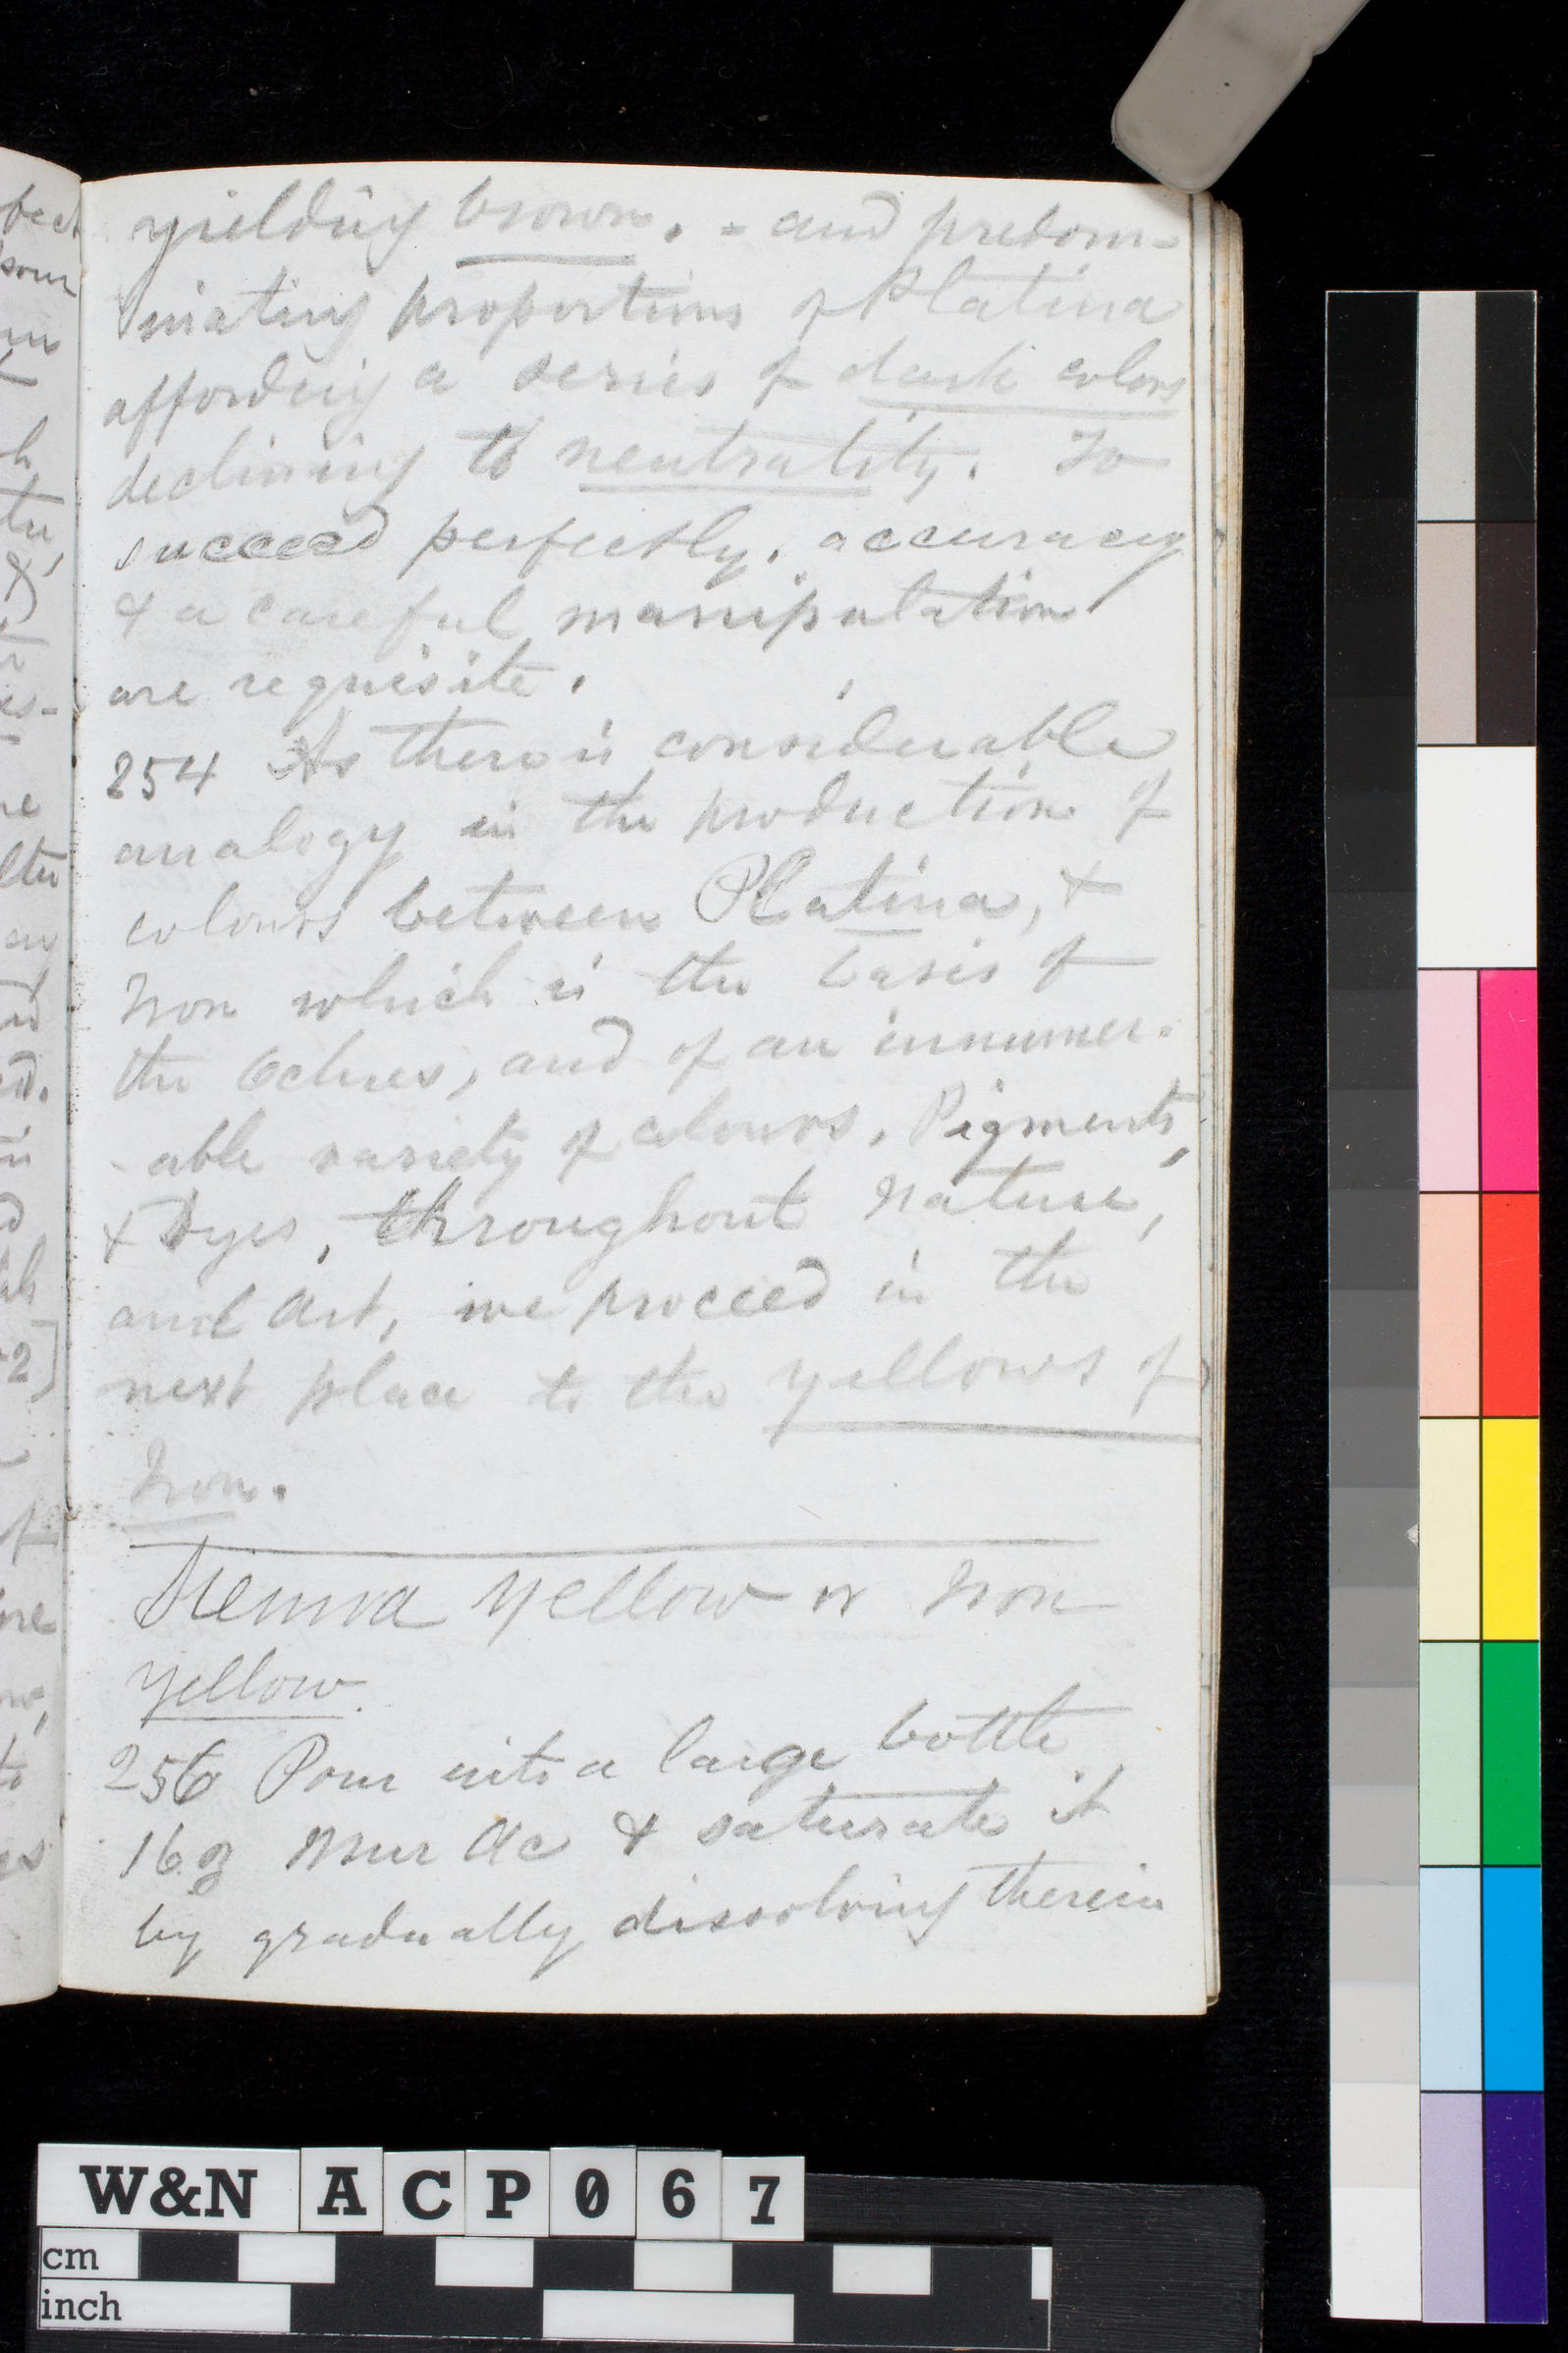 yielding brown. - and predom-
inating proportions of Platina
affording a series of dark colors
declining to neutrality. To
succeed perfectly, accuracy
& a careful manipulation
are requisite.
254 As there is considerable
analogy in the production of
colours between Platina, &
Iron which is the basis of
the Ochres, and of an innumer-
-able variety of colours, Pigments,
& Dyes, throughout nature,
and Art, we proceed in the
next place to the yellows of
Iron.
Sienna Yellow or Iron
Yellow.
256 Pour into a large bottle
16 ℥ Mur Ac & saturate it
by gradually dissolving therein
W&N ACP067
cm
inch